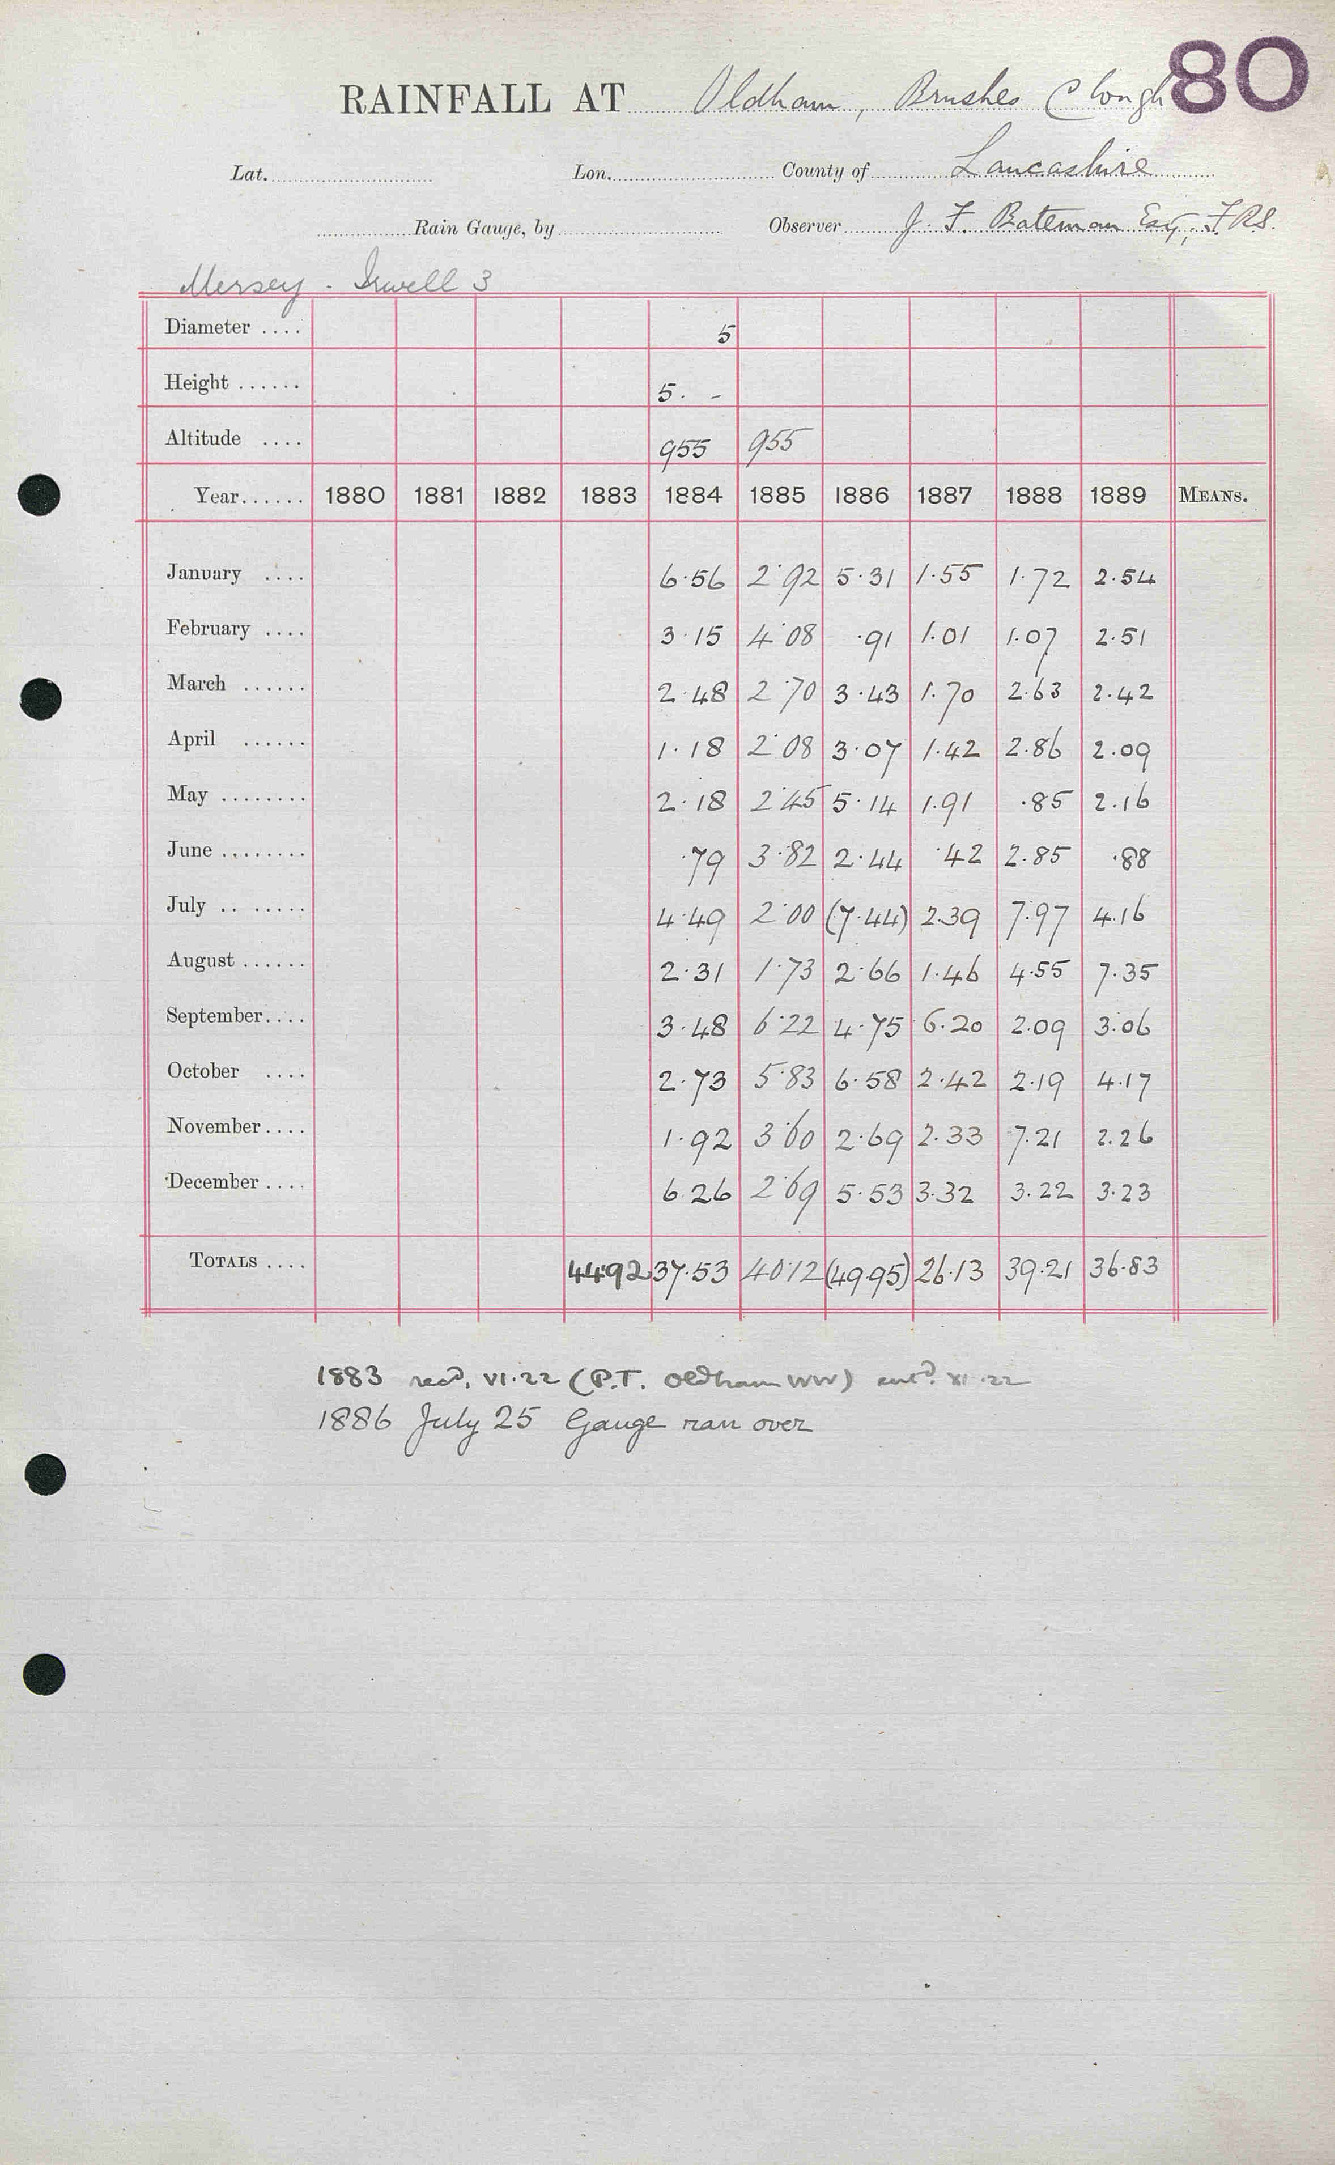 80
RAINFALL AT Oldham, Brushes Clough
Lat. Lon. County of Lancashire
Rain Gauge, by Observer J. F. Bateman Esq, FRS.
Mersey - Irwell 3
Diameter .... 5
Height ...... 5. -
Altitude .... 955 955
Year...... 1880 1881 1882 1883 1884 1885 1886 1887 1888 1889 MEANS.
January .... 6.56 2.92 5.31 1.55 1.72 2.54
February .... 3.15 4.08 .91 1.01 1.07 2.51
March ...... 2.48 2.70 3.43 1.70 2.63 2.42
April ...... 1.18 2.08 3.07 1.42 2.86 2.09
May ........ 2.18 2.45 5.14 1.91 .85 2.16
June ........ .79 3.82 2.44 .42 2.85 .88
July .. ...... 4.49 2.00 (7.44) 2.39 7.97 4.16
August ...... 2.31 1.73 2.66 1.46 4.55 7.35
September.... 3.48 6.22 4.75 6.20 2.09 3.06
October .... 2.73 5.83 6.58 2.42 2.19 4.17
November.... 1.92 3.60 2.69 2.33 7.21 2.26
December .... 6.26 2.69 5.53 3.32 3.22 3.23
TOTALS .... 44.92 37.53 40.12 (49.95) 26.13 39.21 36.83
1883 recd. VI.22 (P.T. Oldham WW) entd. XI.22
1886 July 25 Gauge ran over